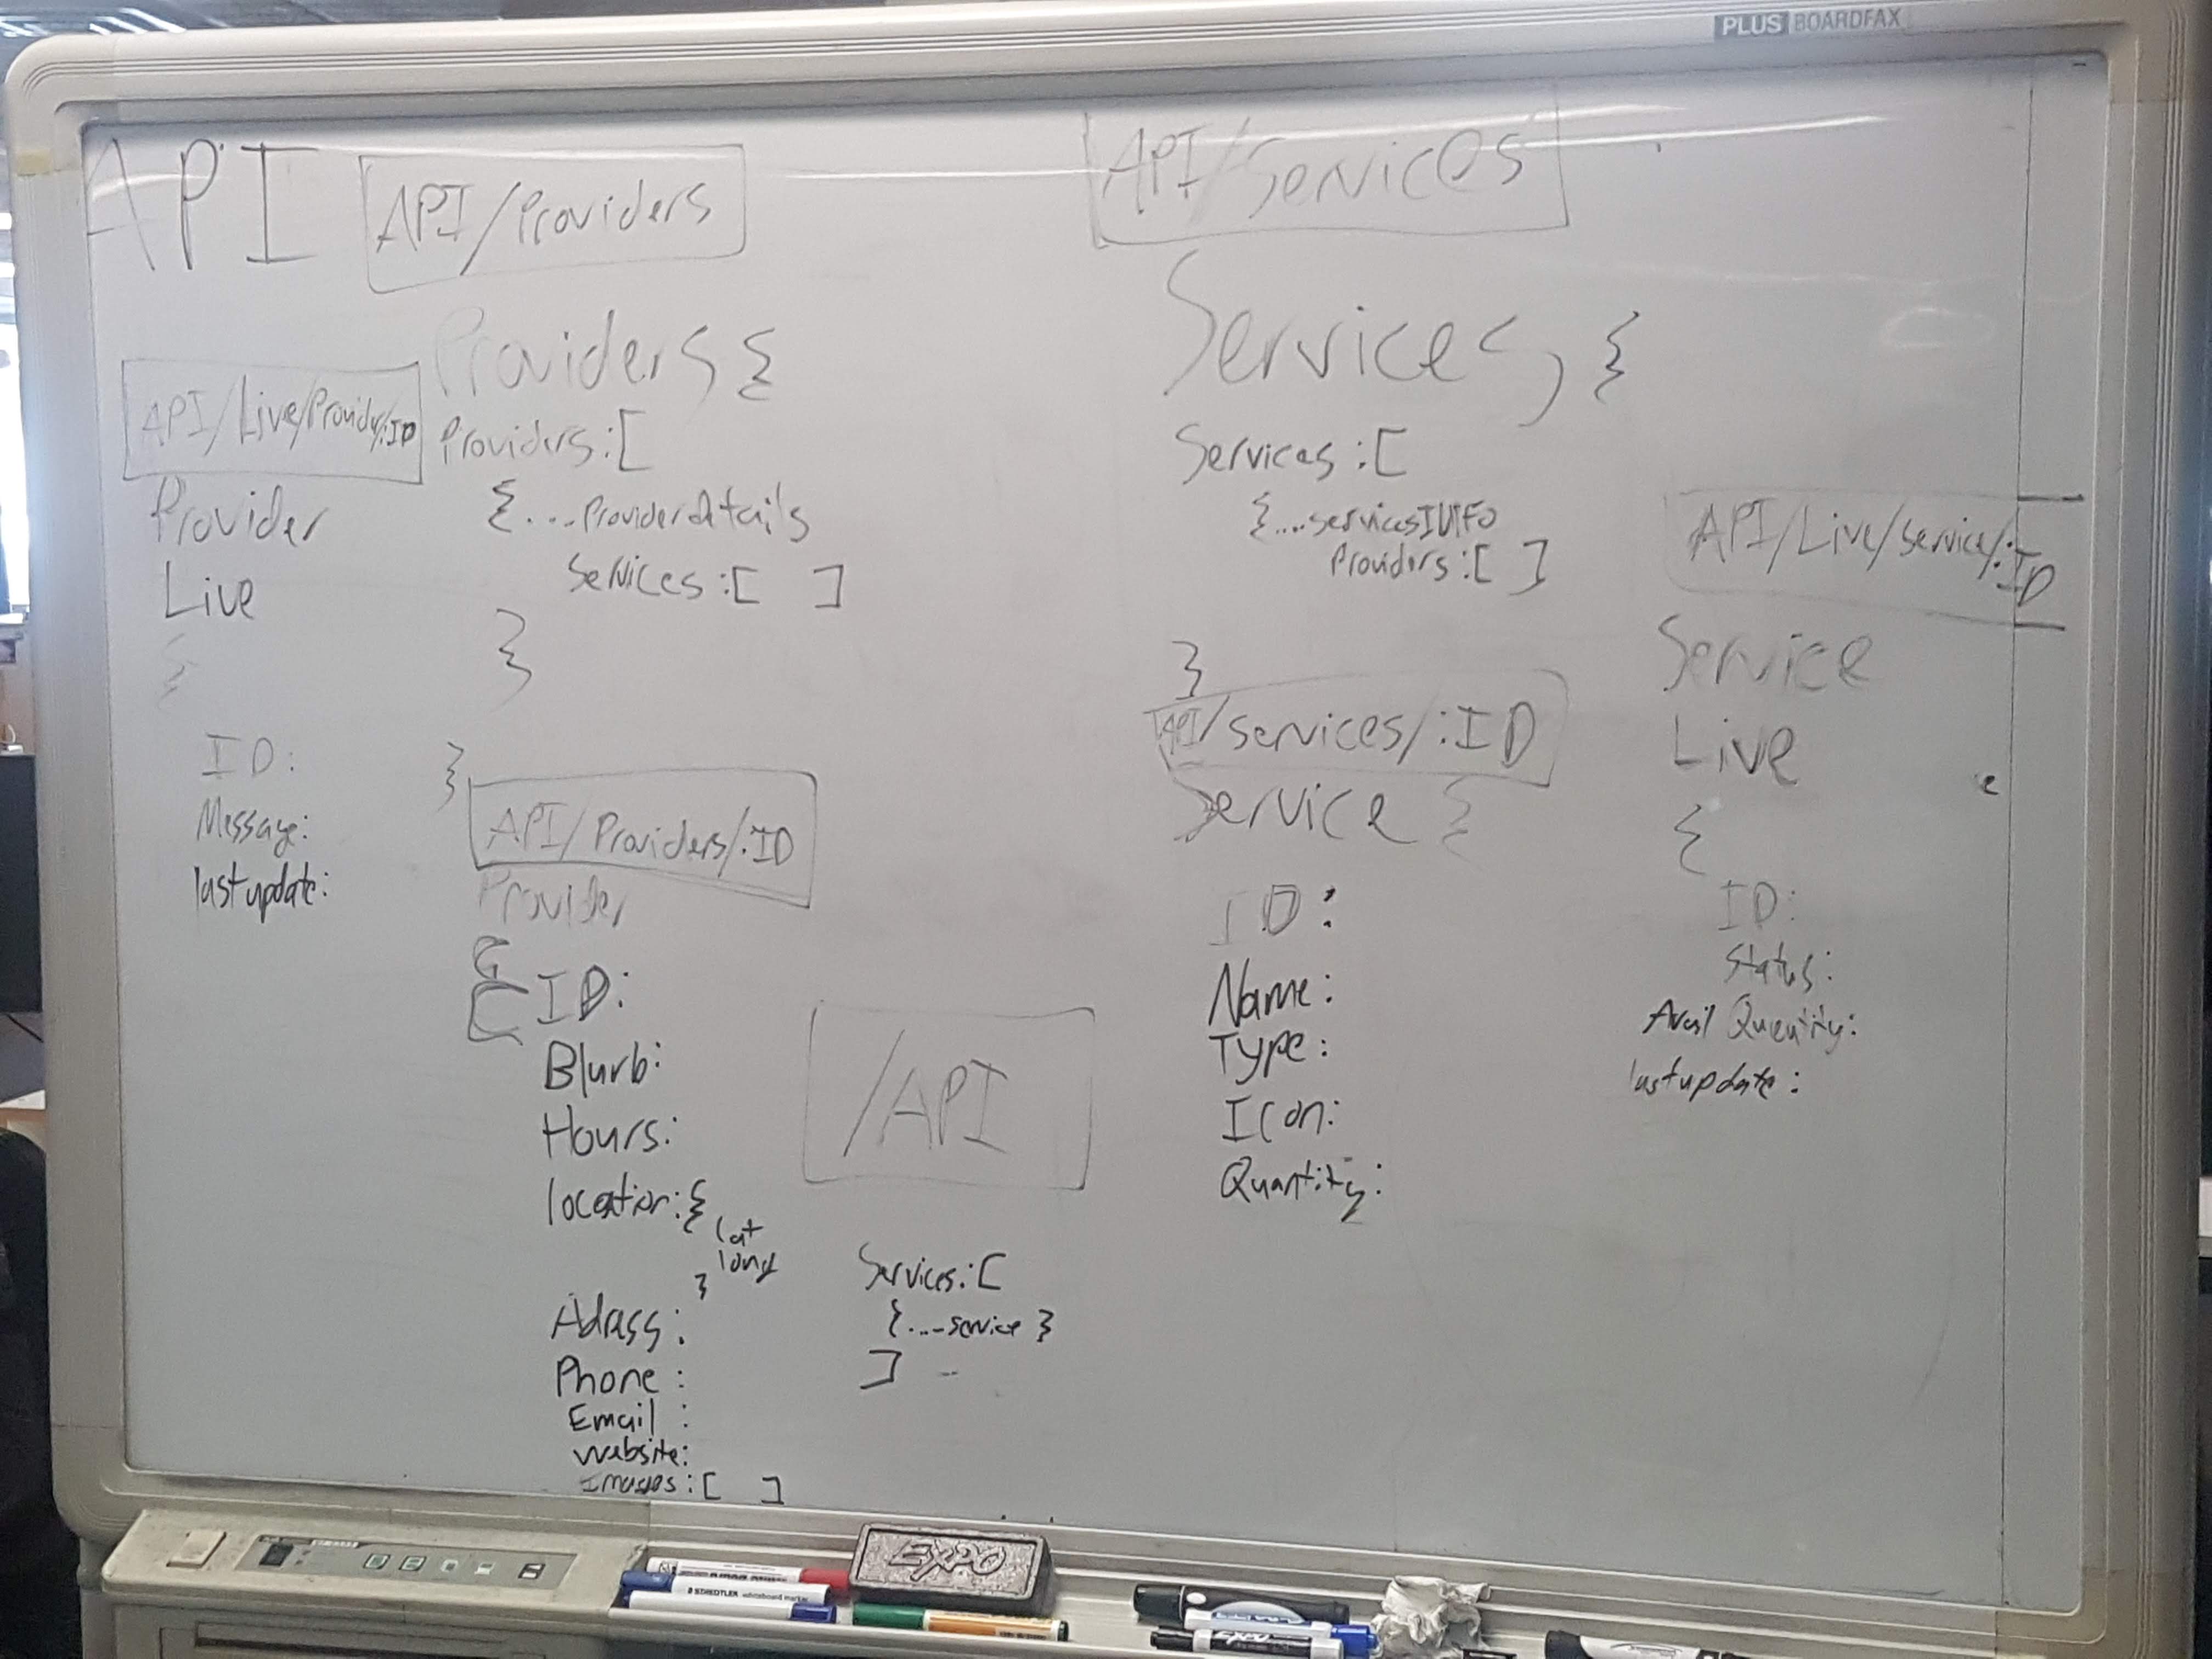 PLUS BOARDFAX
API
API/Providers
Providers {
Providers:[
{....Providerdetails
Services:[ ]
}
}
API/Live/Provider/:ID
Provider
Live
{
ID:
Message:
last update:
API/Providers/:ID
Provider
{
ID:
Blurb:
Hours:
location:{
lat
long
}
Adress:
Phone:
Email:
website:
Images:[ ]
/API
Services:[
{....service}
]
API/Services
Services {
Services:[
{....servicesINFO
Providers:[ ]
}
API/services/:ID
Service {
ID:
Name:
Type:
Icon:
Quantity:
API/Live/service/:ID
Service
Live
{
ID:
Status:
Avail Quentity:
lastupdate:
EXPO
STAEDTLER whiteboard marker
EXPO